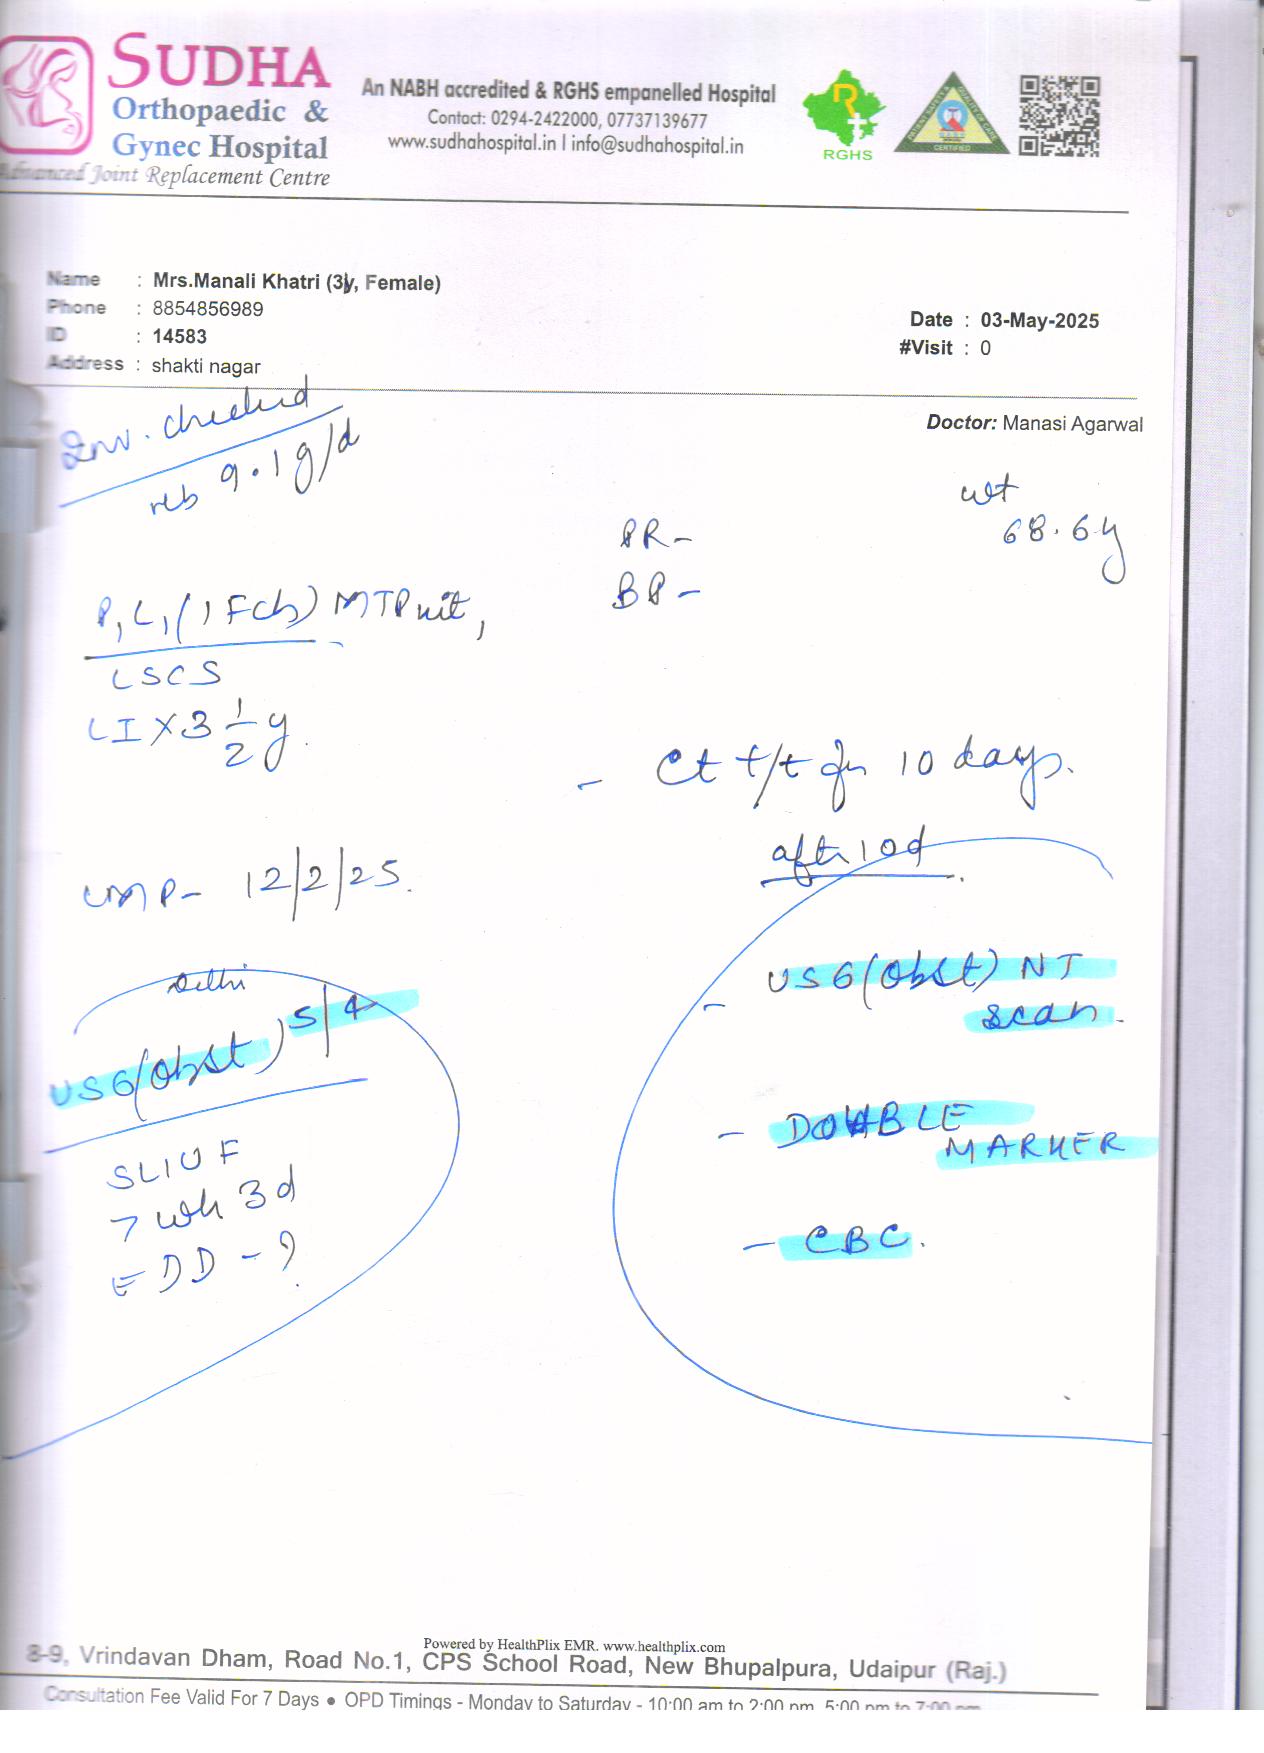 SUDHA
Orthopaedic &
Gynec Hospital
Advanced Joint Replacement Centre
An NABH accredited & RGHS empanelled Hospital
Contact: 0294-2422000, 07737139677
www.sudhahospital.in | info@sudhahospital.in
R+
RGHS
CERTIFIED
Name : Mrs.Manali Khatri (3y, Female)
Phone : 8854856989
ID : 14583
Address : shakti nagar
Date : 03-May-2025
#Visit : 0
Doctor: Manasi Agarwal
Inv. checked
9.1 g/d
wt
68.6
PR-
BP-
P1L1 (1 Fch) MTP kit,
LSCS
LI x 3 1/2 y.
- Ct t/t for 10 days.
after 10d.
LMP- 12/2/25.
Delhi
USG(Obst) 5/4
SLIUF
7 wk 3d
EDD - ?
- USG(Obst) NT
scan.
- DOUBLE
MARKER
- CBC.
Powered by HealthPlix EMR. www.healthplix.com
8-9, Vrindavan Dham, Road No.1, CPS School Road, New Bhupalpura, Udaipur (Raj.)
Consultation Fee Valid For 7 Days ● OPD Timings - Monday to Saturday - 10:00 am to 2:00 pm, 5:00 pm to 7:00 pm